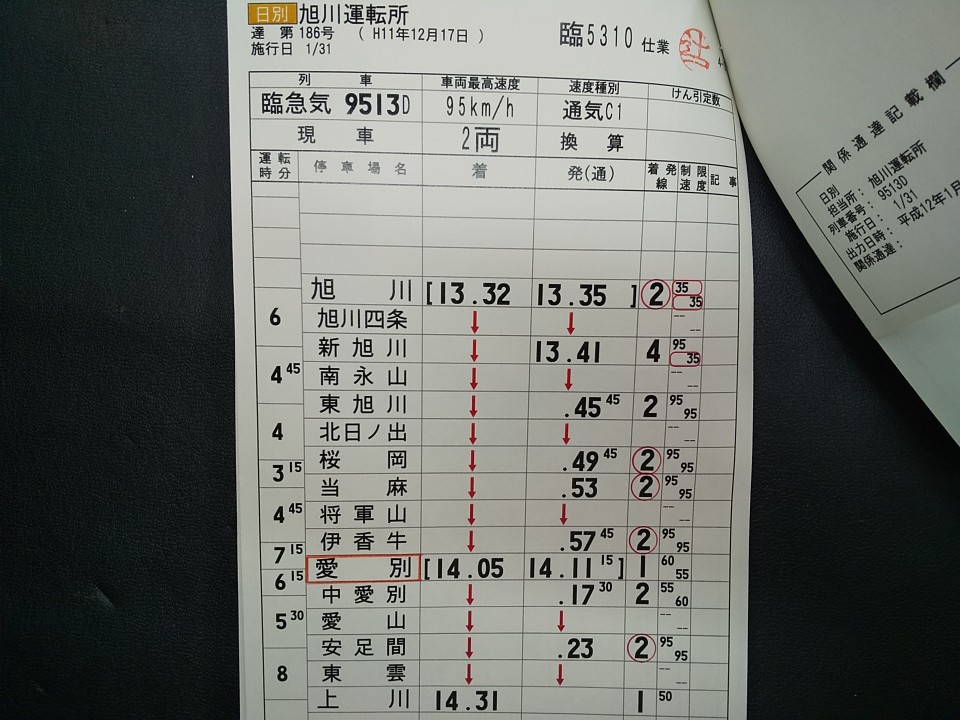 日別 旭川運転所
達 第186号 ( H11年12月17日 )
施行日 1/31
臨5310 仕業
列 車 車両最高速度 速度種別 けん引定数
臨急気 9513D 95km/h 通気C1
現 車 2両 換 算
運転時分 停車場名 着 発(通) 着発線 制限速度 記事
旭 川 [13.32 13.35 ] 2 35 35
6
旭川四条 ↓ ↓ -- --
新旭川 ↓ 13.41 4 95 35
4 45
南永山 ↓ ↓ -- --
東旭川 ↓ .45 45 2 95 95
4
北日ノ出 ↓ ↓ -- --
桜 岡 ↓ .49 45 2 95 95
3 15
当 麻 ↓ .53 2 95 95
4 45
将軍山 ↓ ↓ -- --
伊香牛 ↓ .57 45 2 95 95
7 15
愛 別 [14.05 14.11 15 ] 1 60 55
6 15
中愛別 ↓ .17 30 2 55 60
5 30
愛 山 ↓ ↓ -- --
安足間 ↓ .23 2 95 95
8
東 雲 ↓ ↓ -- --
上 川 14.31 1 50
関係通達記載欄
日別
担当所: 旭川運転所
列車番号: 9513D
施行日: 1/31
出力日時: 平成12年1月
関係通達: